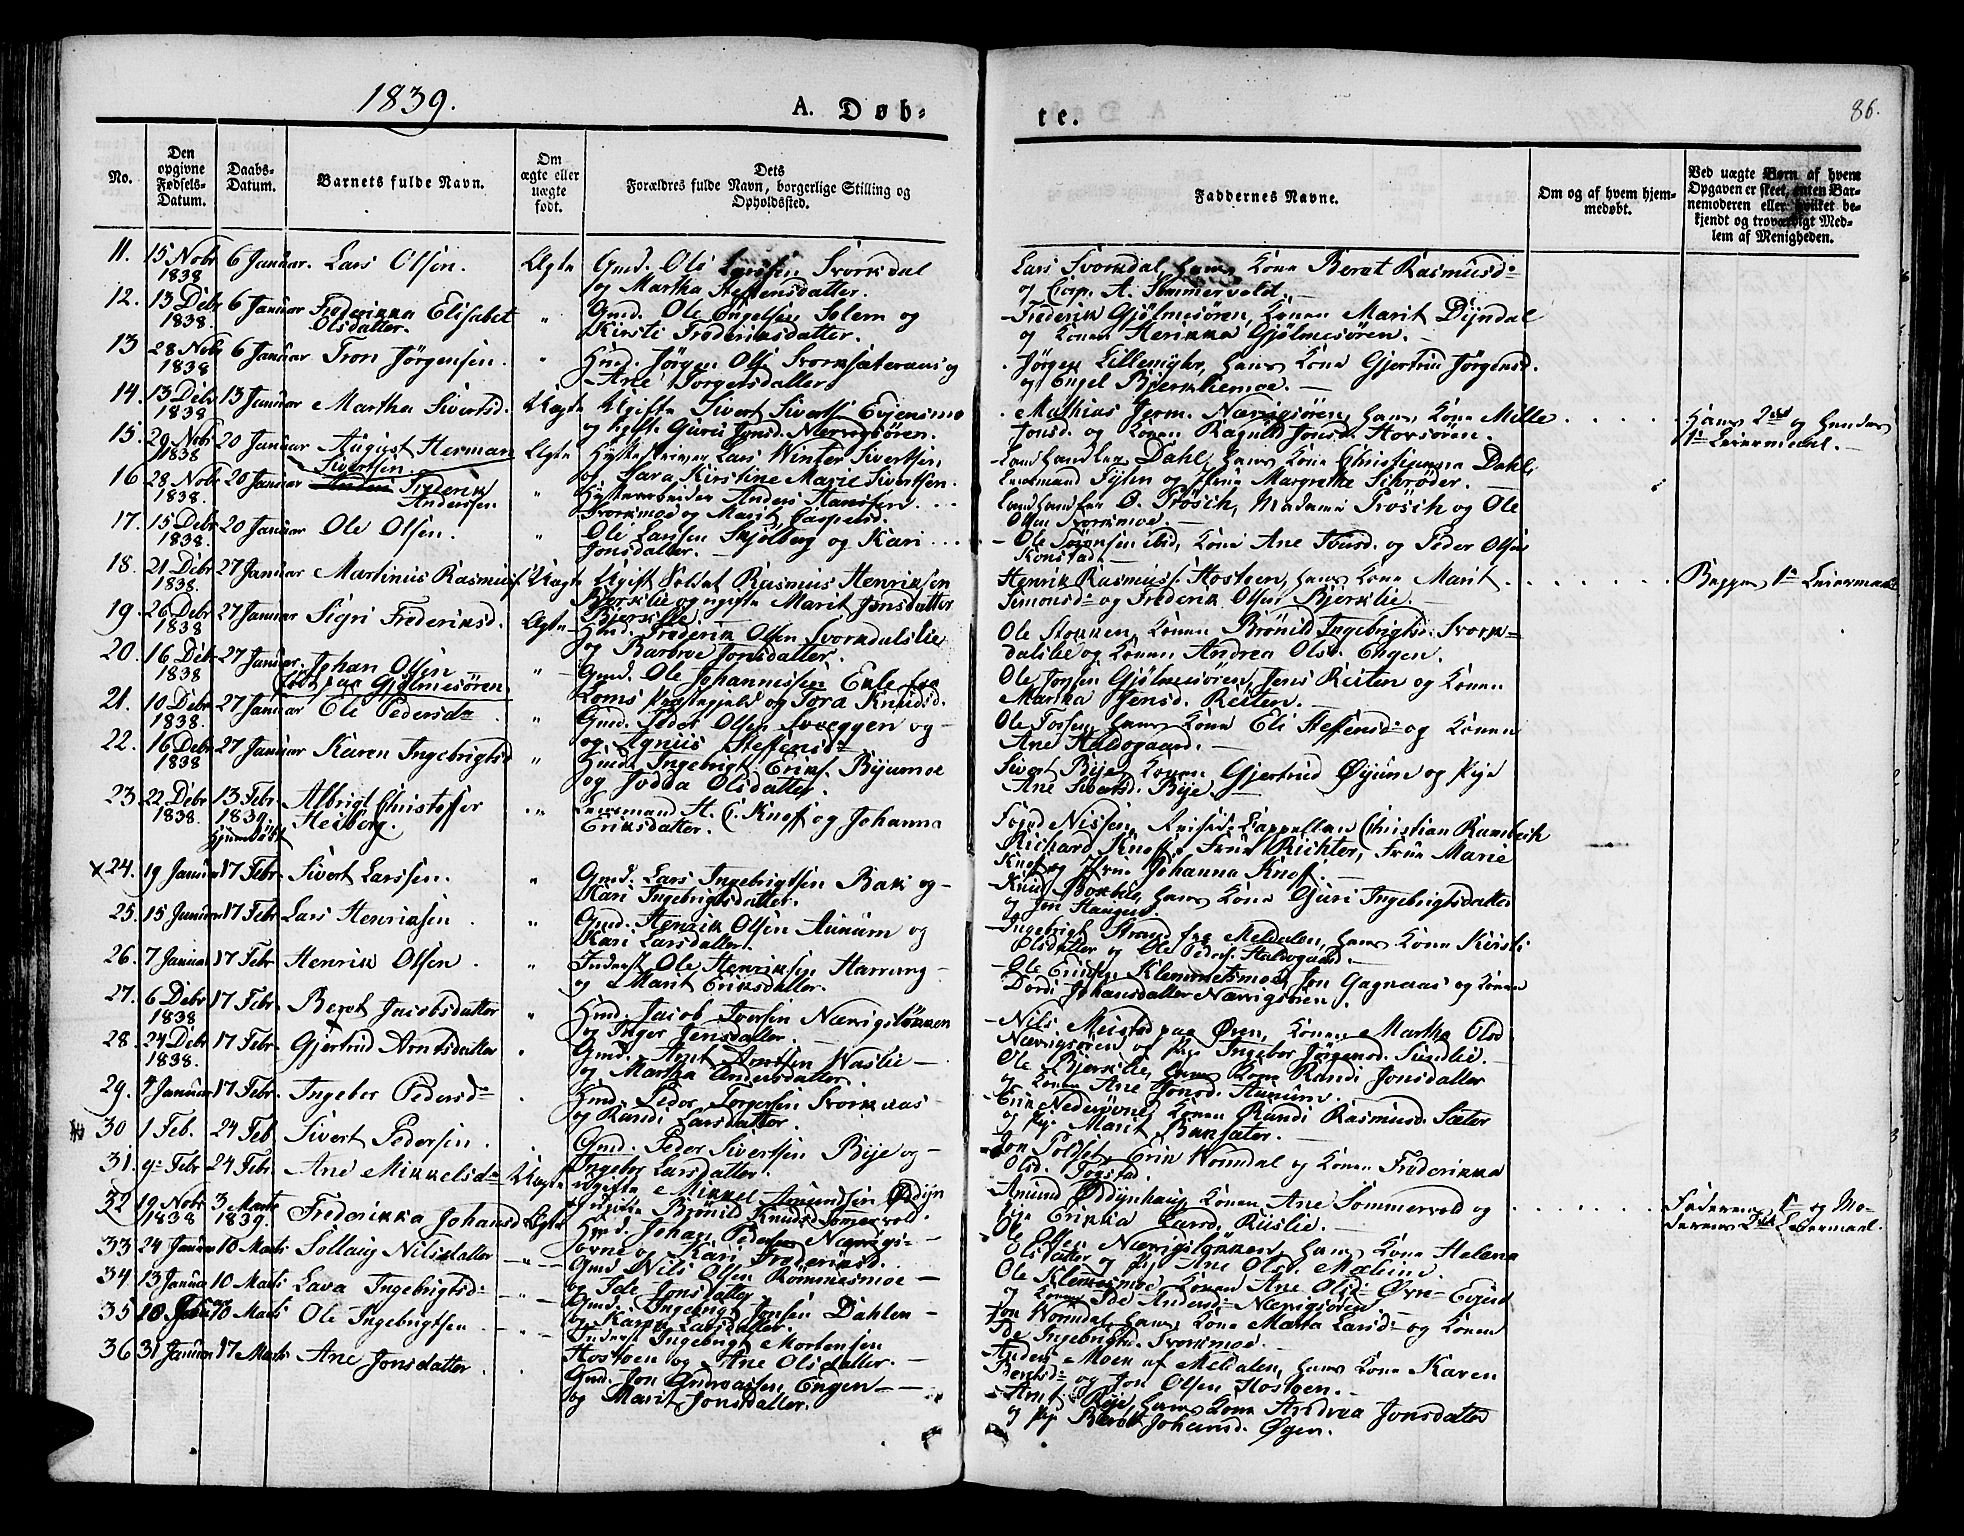 1839.
A. Døb-
te.
86.
No.
Den opgivne Fødsels-Datum.
Daabs-Datum.
Barnets fulde Navn.
Om ægte eller uægte født.
Dets Forældres fulde Navn, borgerlige Stilling og Opholdssted.
Faddernes Navne.
Om og af hvem hjem-medøbt.
Ved uægte Børn af hvem Opgaven er skeet, enten Bar-nemoderen eller hvilket be-kjendt og troværdigt Med-lem af Menigheden.
11. 15 Nobr 1838 6 Januar. Lars Olsen. Ægte Gmd. Ole Larssen Svorkdal
og Martha Steffensdatter.
Lars Svorkdal, hans Kone Berat Rasmusd.
og Corp. A. Sommervold.
12. 13 Debr 1838. 6 Januar Frederikka Elisabet Olsdatter. " Gmd. Ole Engelsen Solem og
Kirsti Frederiksdatter.
Frederik Gjølmesøren, Konen Marit Dyndal
og Konen Herikka Gjølmesøren.
13 28 Nobr 1838 6 Januar Tron Jörgensen. " Hmd. Jörgen Olsen Svorksæteraas og
Ane Jörgensdatter
Jörgen Lillemyhr, hans Kone Gjertru Jörgensd.
og Engel Bjerkliemoe.
14. 13 Debr 1838 13 Januar Martha Sivertsd. Uægte Ugifte Sivert Sivertsen Evjensmo
og ugifte Guru Jonsd. Nærvigsören.
Mathias Jerm. Nærvigsören, hans Kone Mille
Jonsd. og Konen Ragnild Jonsd. Hovsören.
Hans 2det og hendes
1ste Leiermaal.
15. 29 Nobr 1838 20 Januar August Herman Sivertsen. Ægte Lars Winter Sivertsen
og Sara Kirstine Marie Sivertsen.
Landhandler Dahl, hans Kone Christianna Dahl,
16 28 Nobr 1838. 20 Januar Frederik Andersen " Hyttearbeider Anders Hanssen
Svorkmoe og Marit Caspersd.
Landhandler O. Prösch, Madame Prösch og Ole
Olsen Svorkmoe.
17. 15 Debr 1838. 20 Januar Ole Olsen. " Ole Larssen Skjölberg og Kari
Jonsdatter.
Ole Sörensen ibid, Kone Ane Iversd. og Peder Olsen
Konstad.
18. 21 Debr 1838. 27 Januar Martinus Rasmuss. Uægte Ugift Soldat Rasmus Henriksen
Bjerklie og ugifte Marit Jonsdatter
Bjerklie
Henrik Rasmuss. Hostoen, hans Kone Marit
Simonsd. og Frederik Olsen Bjerklie.
Begges 1ste Leiermaal
19. 26 Debr 1838 27 Januar Sigri Frederiksd. Ægte Hmd. Frederik Olsen Svorkdalslie
og Barbroe Jonsdatter.
Ole Stokken, Konen Brönild Ingebrigtsd. Svork=
dalslie og Konen Andrea Olsd. Engen.
20. 16 Debr 1838 27 Januar. Johan Olsen
født paa Gjølmesören. " Gmd. Ole Johannessen Enle fra
Loms Præstegjeld og Tora Knudsd.
Ole Jonsen Gjølmesören, Jens Reiten og Konen
Martha Jensd. Reiten.
21. 10 Debr 1838. 27 Januar Eli Pedersd. " Gmd. Peder Olsen Sveeggen og
og Agniis Steffensd.
Ole Tossen, hans Kone Eli Steffensd. og Konen
Ane Haldogaard.
22. 16 Debr 1838 27 Januar Karen Ingebrigtsd " Hmd. Ingebrigt Eriks. Byemoe
og Jodda Olsdatter.
Sivert Bye, Konen Gjertrud Øyum og Pige
Ane Sivertsd. Bye.
23. 22 Debr 1838. 13 Febr 1839. Albrigt Christoffer Heiberg. " Leensmand H. C. Knoff og Johanna
Eriksdatter.
Foged Nissen, Resid. Cappellan Christian Rambech
Richard Knoff, Frue Richter, Frue Marie
Knoff og Johanna Knoff.
24. 19 Januar 17 Febr. Sivert Larssen. " Gmd. Lars Ingebrigtsen Bak og
Kari Ingebrigtsdatter.
hans Kone Guri Ingebrigtsdatter
25. 15 Januar 17 Febr Lars Henriksen " Gmd. Henrik Olsen Aunum og
Kari Larsdatter.
Ingebrigt Strand fra Meldalen, hans Kone Kirsti
Olsdatter og Ole Peders. Haldogaard.
26. 7 Januar 17 Febr Henrik Olsen. " Inderst Ole Henriksen Harrung
og Marit Eriksdatter.
Ole Klemmetsmoe, Jon Gagnaas og Konen
Dordi Johansdatter Nærvigsören.
27. 6 Debr 1838 17 Febr. Beret Jacobsdatter " Hmd. Jacob Iversen Nærvigslökken
og Inger Jensdatter.
Nils paa Øren, Konen Martha Olsd
Nærvigsören og Pige Ingebor Jörgensd. Sundlie.
28. 24 Debr 1838. 17 Febr. Gjertrud Arntsdatter Gmd. Arnt Arntsen Waslie
og Martha Andersdatter.
Ole Bjerklie, hans Kone Randi Jonsdatter
og Konen Ane Jonsd. Aunum.
29. 4 Januar 17 Febr. Ingebor Pedersd. Hmd. Peder Svorkaas
og Randi Larsdatter.
Erik Nederøvne, Konen Randi Rasmusd. Sæter
og Pige Marit Baksæter.
30 1 Feb. 24 Feb Sivert Pedersen. Gmd. Peder Sivertsen Bye og
Ingebor Larsdatter.
Jon Erik Womdal og Konen Frederikka
Olsd. Togstad.
31. 9 Febr 24 Febr. Ane Mikkelsd. Uægte ugifte Mikkel Amundsen Øddyn
Pigen Brönild Knudsd. Sommervold.
Amund Øddynhaug, Konen Ane Sommervold og
Pige Erikka Larsd. Riislie.
Faderens 1ste og Mo-
derens 2det Leiermaal.
32 19 Nobr 1838 3 Marts 1839. Frederikka Johansd Ægte Hmd. Johan Pedersen Nærvigs=
ovne og Kari Frederiksd.
Ole Nærvigslökken, hans Kone Helena
Olsdatter og Pige Ane Olsd.
33 24 Januar 10 Marts Sollaug Nilsdatter Gmd Nils Olsen Rommesmoe
og Ide Jonsdatter
Ole Klemetsmoe, Konen Ane Olsd. Øvre=Evjen
og Konen Ide Andersd. Nærvigsören.
34. 13 Januar 10 Marts Lava Ingebrigtsd. Gmd. Ingebrigt Jonsen Dahlen
og Karen Larsdatter.
Jon Womdal, hans Kone Marta Larsd. og Konen
Ide Ingebrigtsd. Svorkmoe.
35 10 Marts Ole Ingebrigtsen Inderst Ingebrigt Mortensen
Hostoen og Ane Olsdatter.
Anders Moen af Meldalen, hans Kone Karen
Pedersd. og Jon Olsen Hostoen.
36 31 Januar 17 Marts Ane Jonsdatter Gmd. Jon Andreassen Engen
og Marit Jonsdatter.
Arnt Rye, hans Kone Andrea Jonsdatter
og Pige Berét Johansd. Øgen.